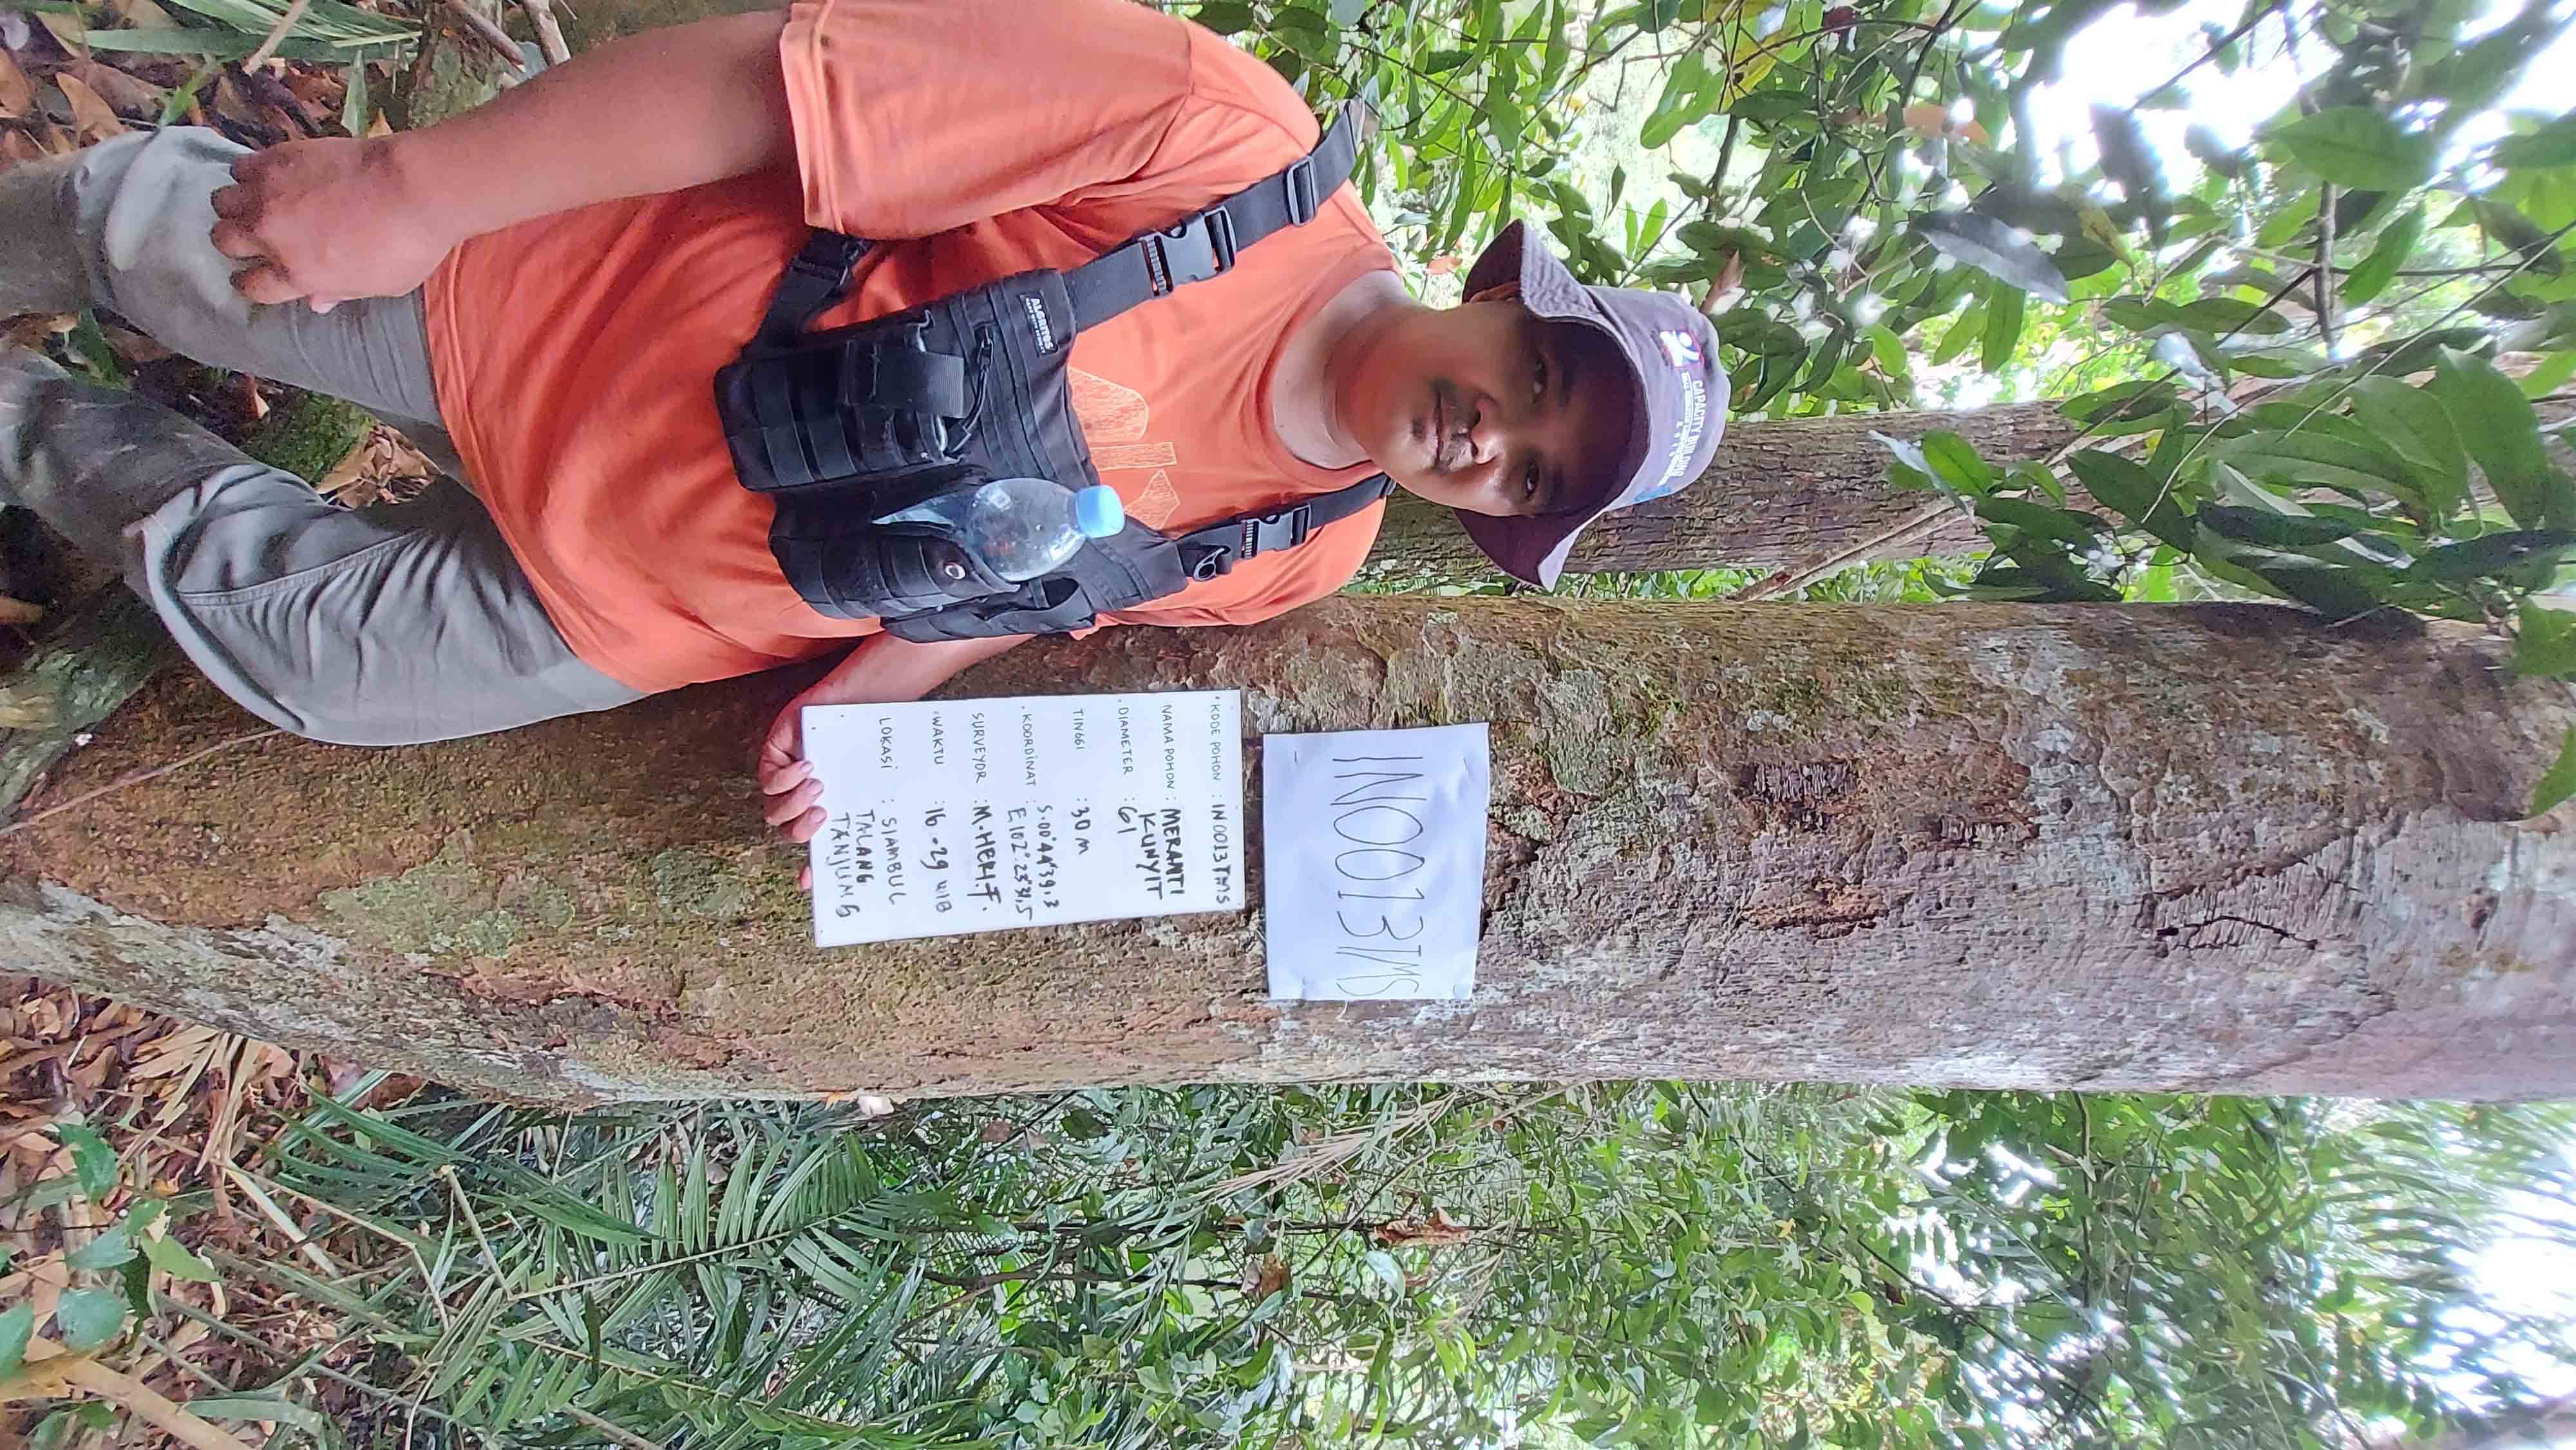 CAPACITY BUILDING
ALGRITOS
IN0013TMS
KODE POHON : IN0013TMS
NAMA POHON : MERANTI
KUNYIT
DIAMETER : 61
TINGGI : 30 M
KOORDINAT : S.00°44'39.3
E 102°.23'31,5
SURVEYOR : M.HERI.F.
WAKTU : 16.29 WIB
LOKASI : SIAMBUL
TALANG
TANJUNG